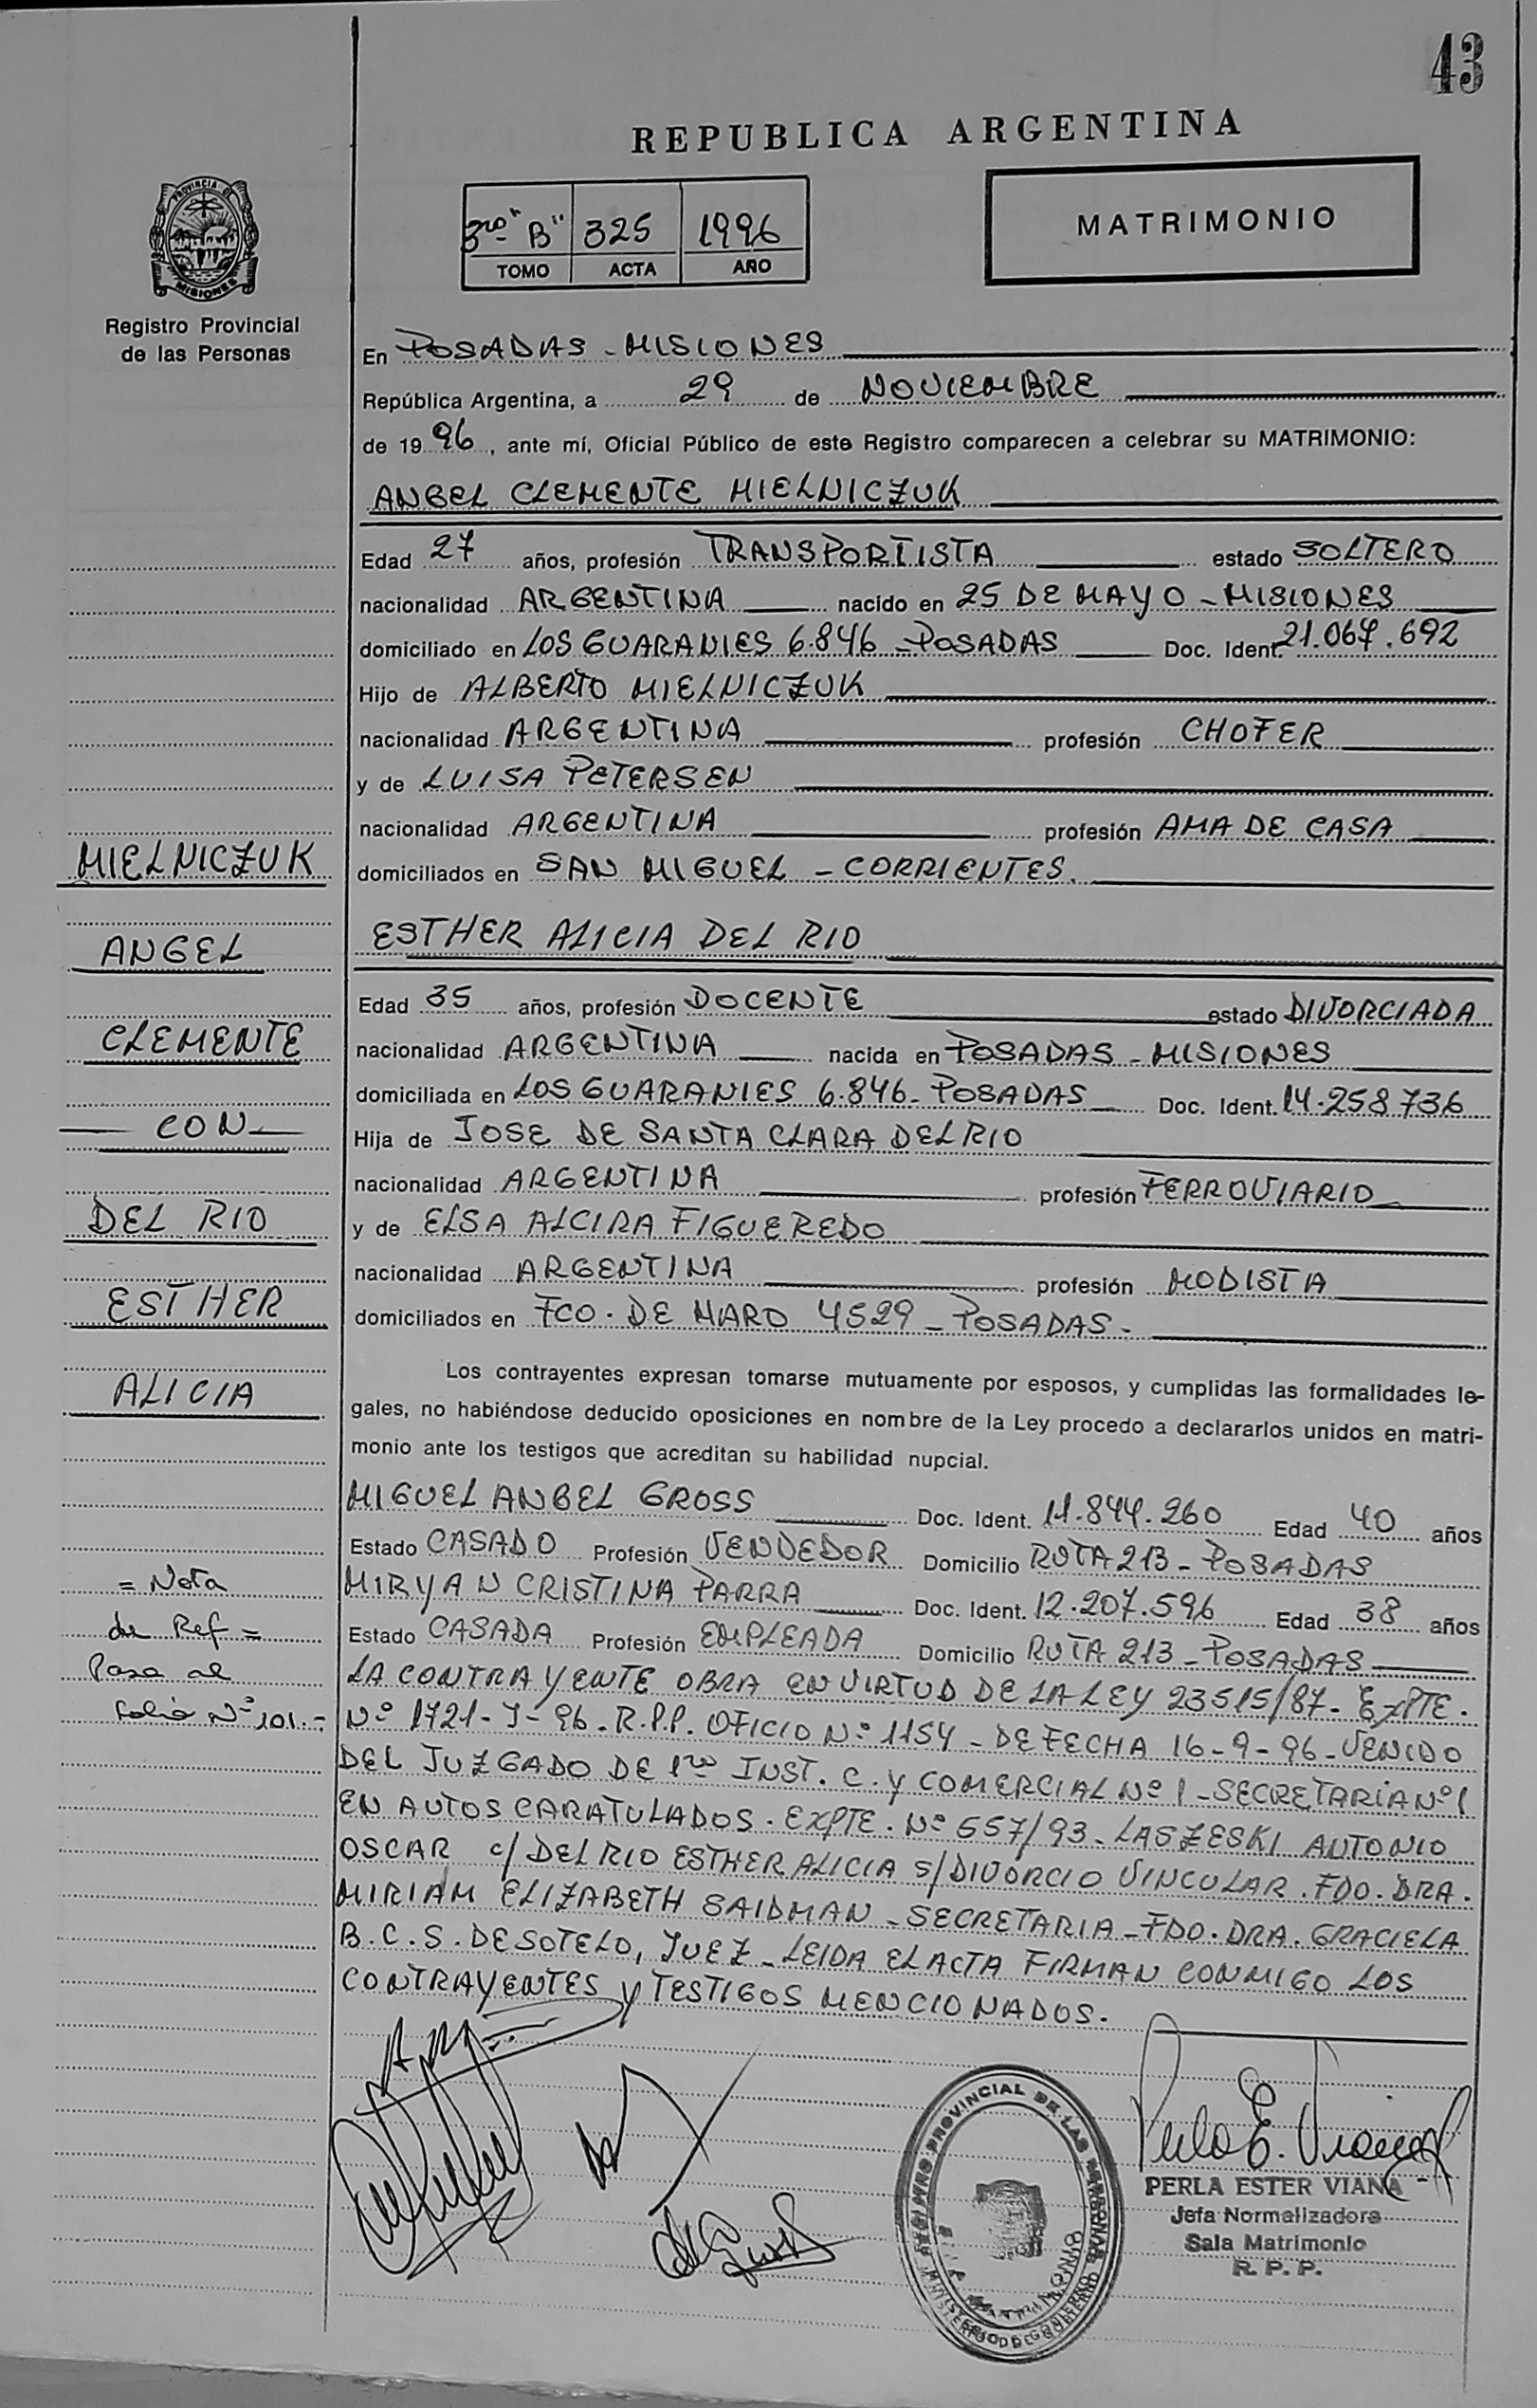 43
REPUBLICA ARGENTINA
3ro "B" 325 1996
TOMO ACTA AÑO
MATRIMONIO
PROVINCIA DE
MISIONES
Registro Provincial
de las Personas
En POSADAS - MISIONES
República Argentina, a 29 de NOVIEMBRE
de 1996, ante mí, Oficial Público de este Registro comparecen a celebrar su MATRIMONIO:
ANGEL CLEMENTE MIELNICZUK
Edad 27 años, profesión TRANSPORTISTA estado SOLTERO
nacionalidad ARGENTINA nacido en 25 DE MAYO - MISIONES
domiciliado en LOS GUARANIES 6.846 - POSADAS Doc. Ident. 21.067.692
Hijo de ALBERTO MIELNICZUK
nacionalidad ARGENTINA profesión CHOFER
y de LUISA PETERSEN
nacionalidad ARGENTINA profesión AMA DE CASA
domiciliados en SAN MIGUEL - CORRIENTES.
ESTHER ALICIA DEL RIO
Edad 35 años, profesión DOCENTE estado DIVORCIADA
nacionalidad ARGENTINA nacida en POSADAS - MISIONES
domiciliada en LOS GUARANIES 6.846 - POSADAS Doc. Ident. 14.258.736
Hija de JOSE DE SANTA CLARA DEL RIO
nacionalidad ARGENTINA profesión FERROVIARIO
y de ELSA ALCIRA FIGUEREDO
nacionalidad ARGENTINA profesión MODISTA
domiciliados en FCO. DE HARO 4529 - POSADAS -
Los contrayentes expresan tomarse mutuamente por esposos, y cumplidas las formalidades le-
gales, no habiéndose deducido oposiciones en nombre de la Ley procedo a declararlos unidos en matri-
monio ante los testigos que acreditan su habilidad nupcial.
MIGUEL ANGEL GROSS Doc. Ident. 11.844.260 Edad 40 años
Estado CASADO Profesión VENDEDOR Domicilio RUTA 213 - POSADAS
MIRYAN CRISTINA PARRA Doc. Ident. 12.207.596 Edad 38 años
Estado CASADA Profesión EMPLEADA Domicilio RUTA 213 - POSADAS
LA CONTRAYENTE OBRA EN VIRTUD DE LA LEY 23515/87 - EXPTE.
Nº 1721-J-96 - R.P.P. OFICIO Nº 1154 - DE FECHA 16-9-96 - VENIDO
DEL JUZGADO DE 1ra INST. C. Y COMERCIAL Nº 1 - SECRETARIA Nº 1
EN AUTOS CARATULADOS. EXPTE. Nº 657/93 - LASZESKI ANTONIO
OSCAR c/ DEL RIO ESTHER ALICIA s/ DIVORCIO VINCULAR. FDO. DRA.
MIRIAM ELIZABETH SAIDMAN - SECRETARIA - FDO. DRA. GRACIELA
B.C.S. DE SOTELO, JUEZ - LEIDA EL ACTA FIRMAN CONMIGO LOS
CONTRAYENTES Y TESTIGOS MENCIONADOS.
MIELNICZUK
ANGEL
CLEMENTE
CON
DEL RIO
ESTHER
ALICIA
= Nota
de Ref =
Pasa al
folio Nº 101.-
REGISTRO PROVINCIAL DE LAS PERSONAS
MATRIMONIO
MINISTERIO DE GOBIERNO
Perla E. Viana
PERLA ESTER VIANA
Jefa Normalizadora
Sala Matrimonio
R. P. P.